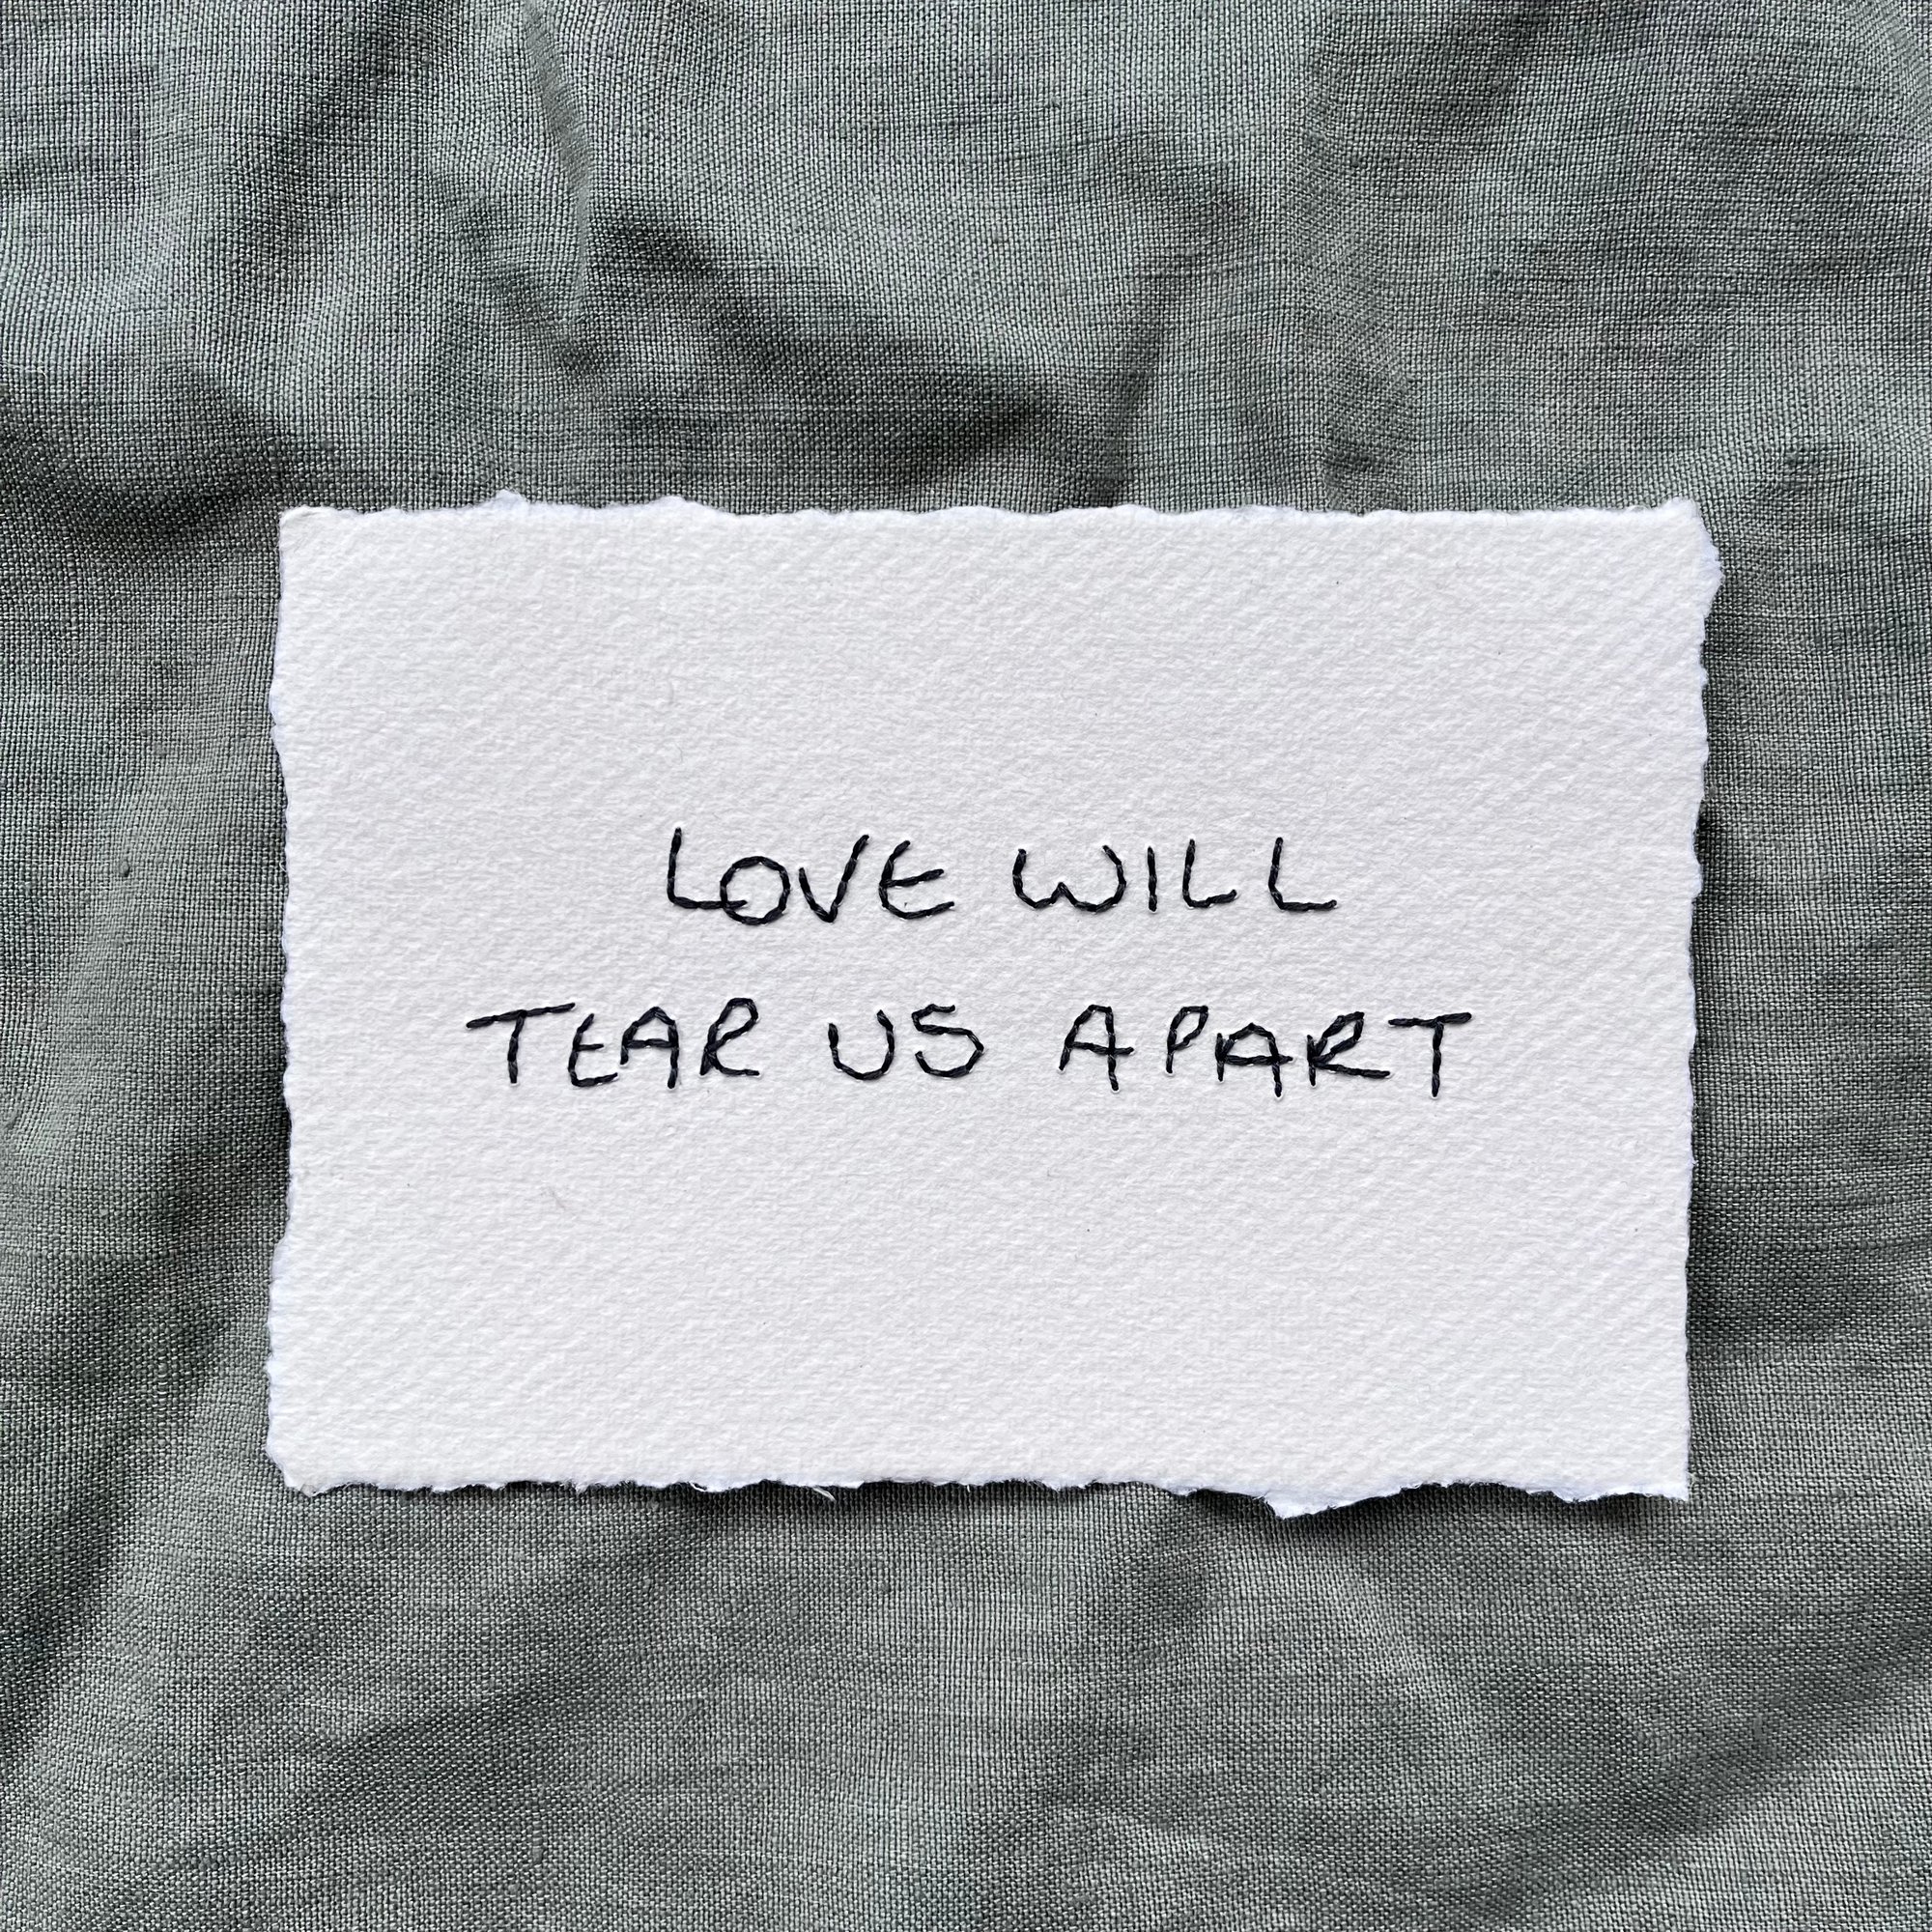 LOVE WILL
TEAR US APART